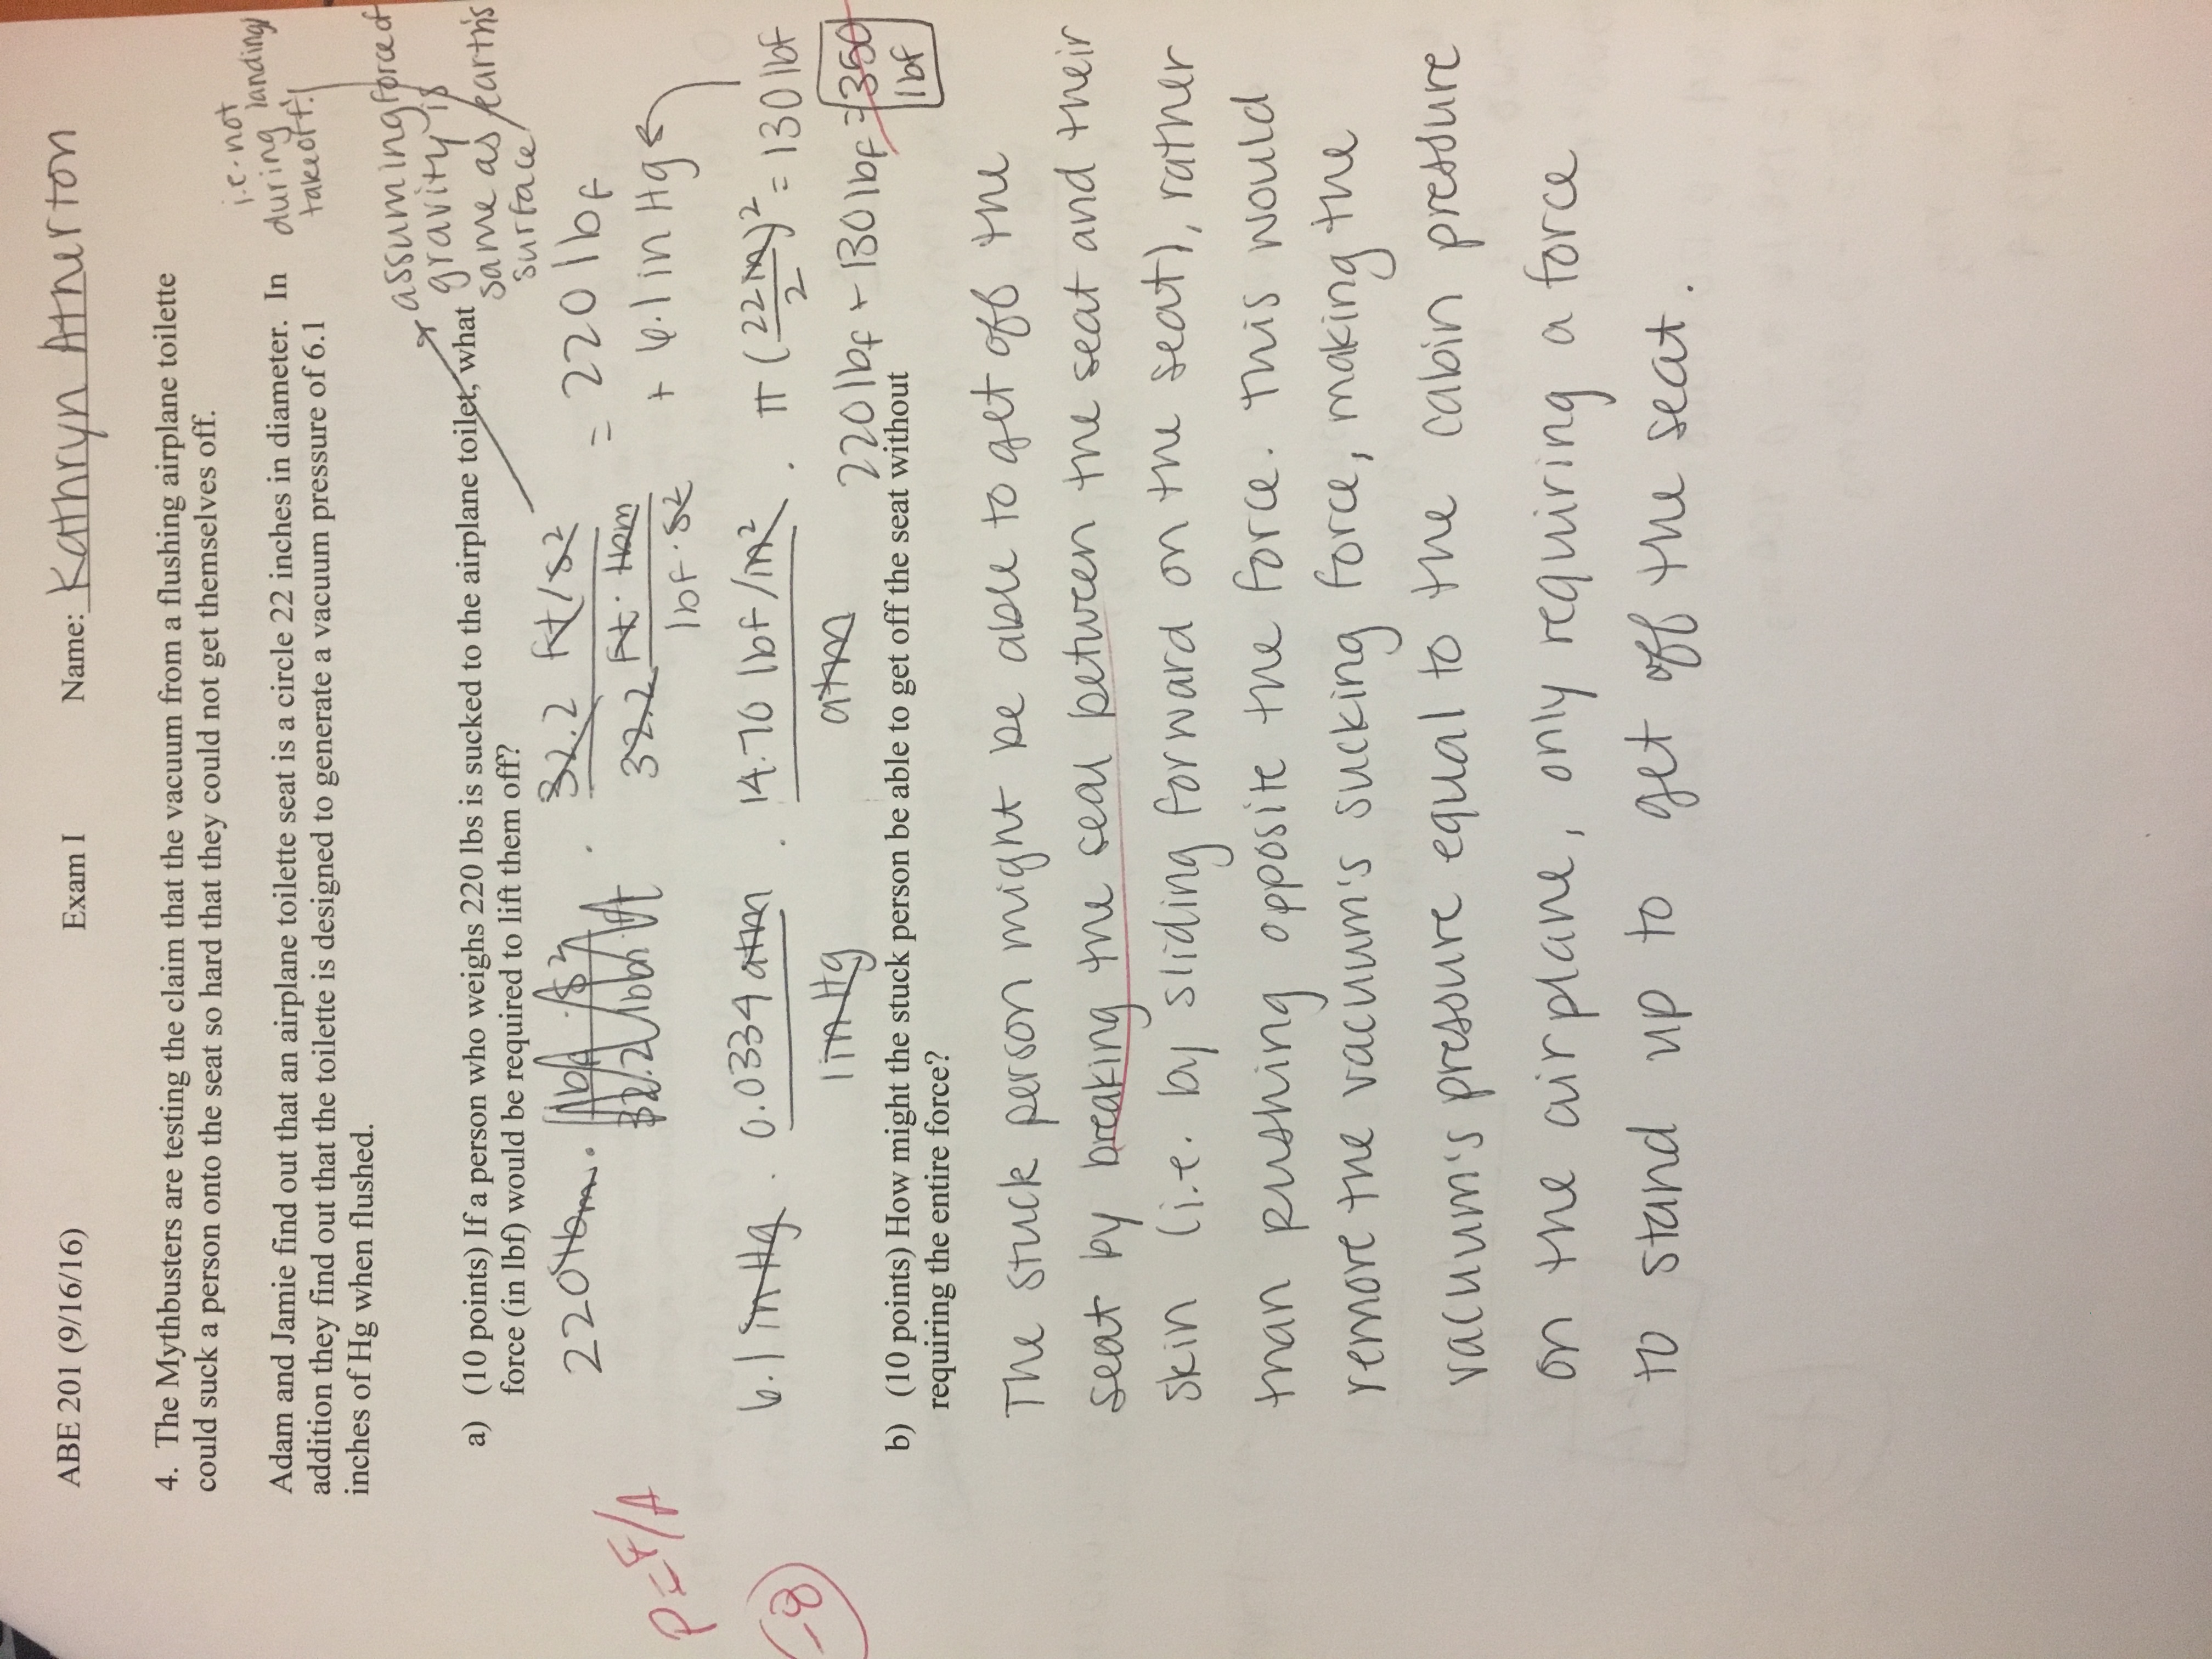 ABE 201 (9/16/16) Exam I Name: Kathryn Atherton
4. The Mythbusters are testing the claim that the vacuum from a flushing airplane toilette
could suck a person onto the seat so hard that they could not get themselves off.
i.e. not
during landing/
takeoff!
Adam and Jamie find out that an airplane toilette seat is a circle 22 inches in diameter. In
addition they find out that the toilette is designed to generate a vacuum pressure of 6.1
inches of Hg when flushed.
assuming force of
gravity is
same as earth's
surface
a) (10 points) If a person who weighs 220 lbs is sucked to the airplane toilet, what
force (in lbf) would be required to lift them off?
220 lbm · lbf · s² / 32.2 lbm ft · 32.2 ft/s² / 32.2 ft · lbm / lbf · s² = 220 lbf
+ 6.1 in Hg
P = F/A
6.1 in Hg · 0.0334 atm / 1 in Hg · 14.70 lbf/in² / atm · π (22 in / 2)² = 130 lbf
-8
220 lbf + 130 lbf = 350
lbf
b) (10 points) How might the stuck person be able to get off the seat without
requiring the entire force?
The stuck person might be able to get off the
seat by breaking the seal between the seat and their
skin (i.e. by sliding forward on the seat), rather
than pushing opposite the force. This would
remove the vacuum's sucking force, making the
vacuum's pressure equal to the cabin pressure
on the airplane, only requiring a force
to stand up to get off the seat.